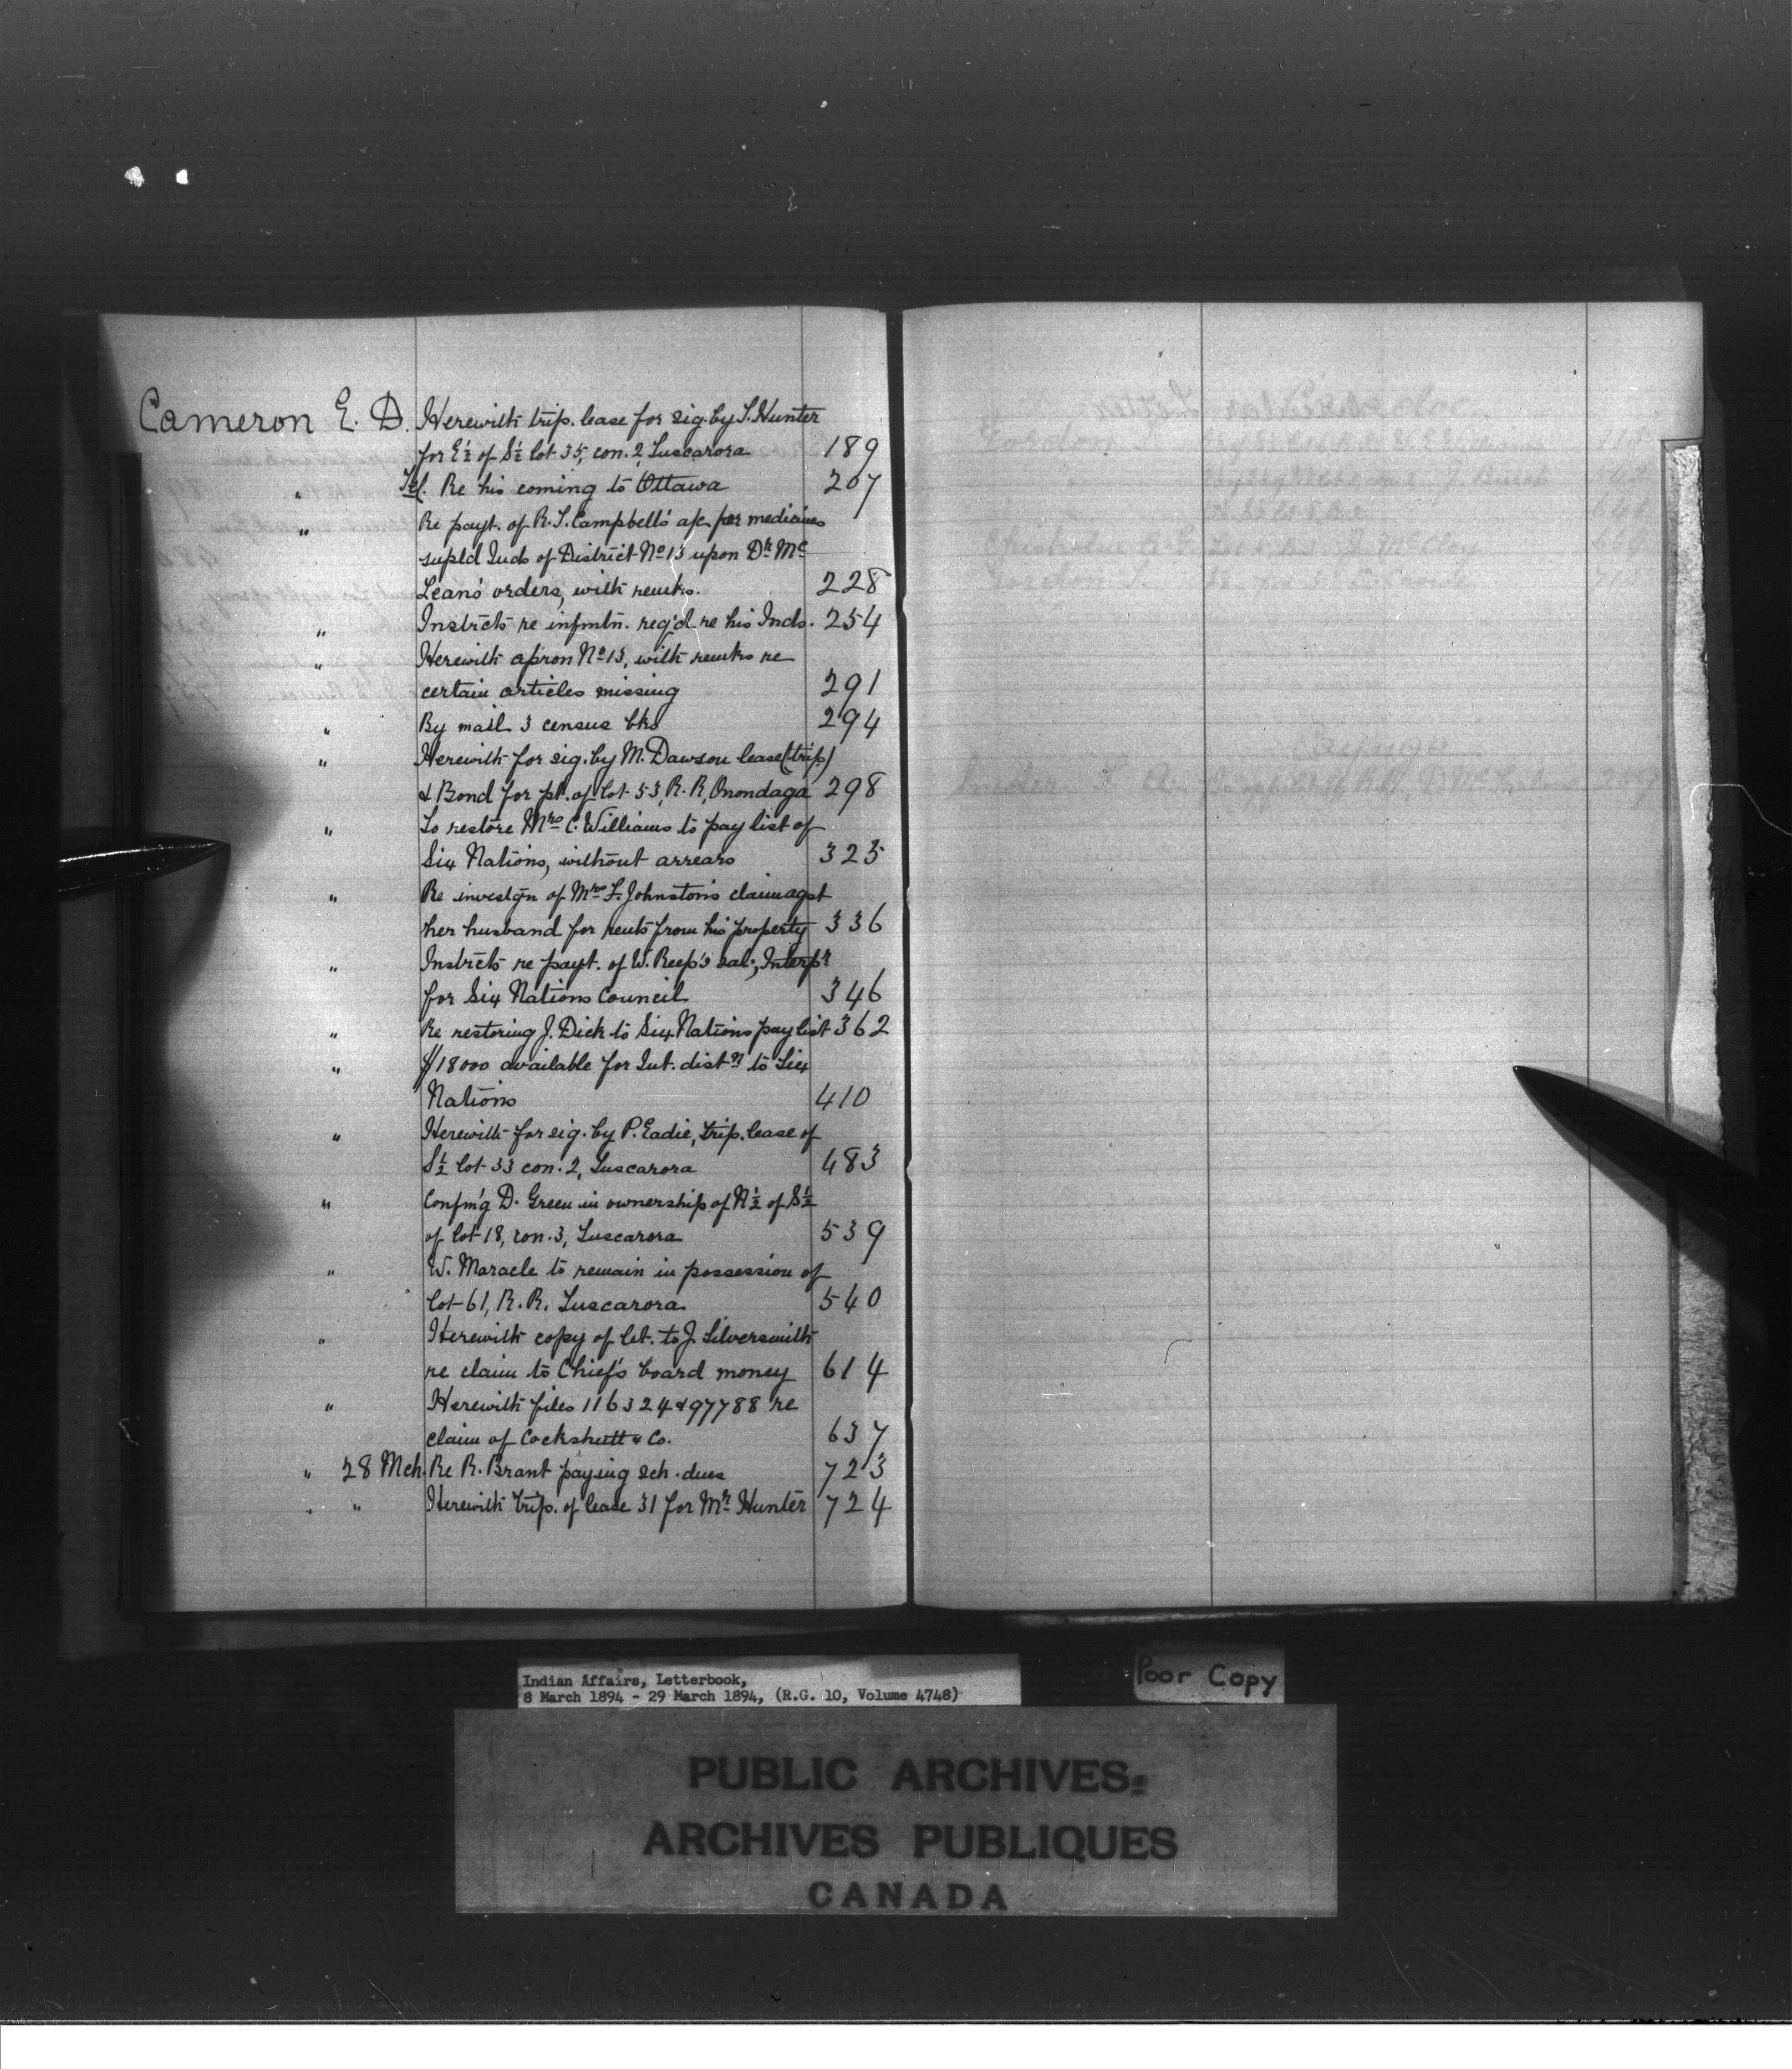 Cameron E. D. Herewith trip. lease for sig. by T. Hunter
for E½ of S½ lot 35, con. 2, Tuscarora 189
" Tel. Re his coming to Ottawa 207
" Re payt. of R. T. Campbell's a/c for medicines
supld Inds of District No 13 upon Dr. Mc
Lean's orders, with remks. 228
" Instrcts re infmtn. req'd re his Inds. 254
" Herewith apron No 13, with remks re
certain articles missing 291
" By mail 3 census bks 294
" Herewith for sig. by M. Dawson lease (trip.)
& Bond for pt. of lot 53, R. R, Onondaga 298
" To restore Mrs C. Williams to pay list of
Six Nations, without arrears 325
" Re investgn of Mrs F. Johnston's claim agst
her husband for rents from his property 336
" Instrcts re payt. of W. Reep's sal., Interpr
for Six Nations Council 346
" Re restoring J. Dick to Six Nations pay list 362
" $18000 available for Int. distn to Six
Nations 410
" Herewith for sig. by P. Eadie, trip. lease of
S½ lot 33 con. 2, Tuscarora 483
" Confm'g D. Green in ownership of N½ of S½
of lot 18, con. 3, Tuscarora 539
" W. Maracle to remain in possession of
lot 61, R. R. Tuscarora 540
" Herewith copy of let. to J. Silversmith
re claim to Chief's board money 614
" Herewith files 116324 & 97788 re
claim of Cockshutt & Co. 637
" 28 Mch. Re R. Brant paying sch. dues 723
" " Herewith trip. of lease 31 for Mr Hunter 724
Indian Affairs, Letterbook,
8 March 1894 - 29 March 1894, (R.G. 10, Volume 4748)
Poor Copy
PUBLIC ARCHIVES
ARCHIVES PUBLIQUES
CANADA